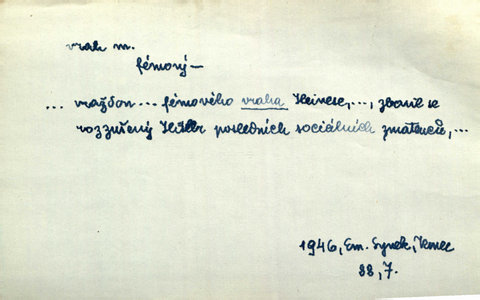 vrah m.
fémový —
... vraždou ... fémového vraha Heinese, ..., zbavil se
rozzuřený Hitler posledních sociálních zmatenců, ...
1946, Em. Synek, Nemec
88, 7.